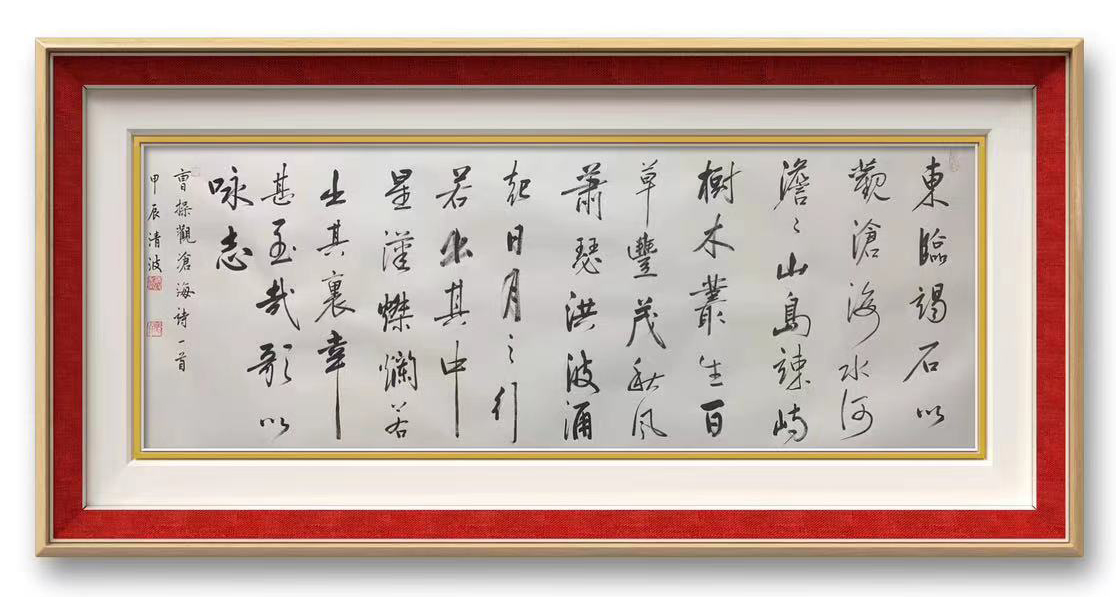 東臨碣石以
觀滄海水何
澹々山島竦峙
樹木叢生百
草豐茂秋風
蕭瑟洪波涌
起日月之行
若出其中
星漢燦爛若
出其裏幸
甚至哉歌以
咏志
曹操觀滄海詩一首
甲辰清波